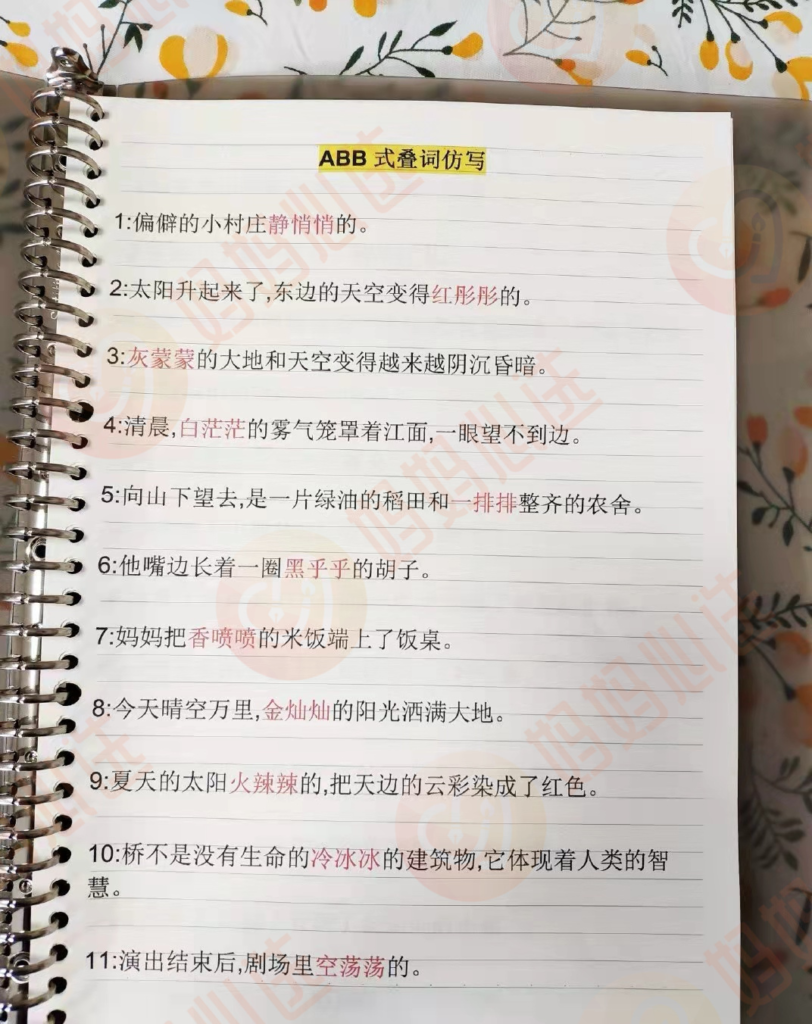 ABB 式叠词仿写
1:偏僻的小村庄静悄悄的。
2:太阳升起来了,东边的天空变得红彤彤的。
3:灰蒙蒙的大地和天空变得越来越阴沉昏暗。
4:清晨,白茫茫的雾气笼罩着江面,一眼望不到边。
5:向山下望去,是一片绿油的稻田和一排排整齐的农舍。
6:他嘴边长着一圈黑乎乎的胡子。
7:妈妈把香喷喷的米饭端上了饭桌。
8:今天晴空万里,金灿灿的阳光洒满大地。
9:夏天的太阳火辣辣的,把天边的云彩染成了红色。
10:桥不是没有生命的冷冰冰的建筑物,它体现着人类的智
慧。
11:演出结束后,剧场里空荡荡的。
妈妈心选
妈妈心选
妈妈心选
妈妈心选
妈妈心选